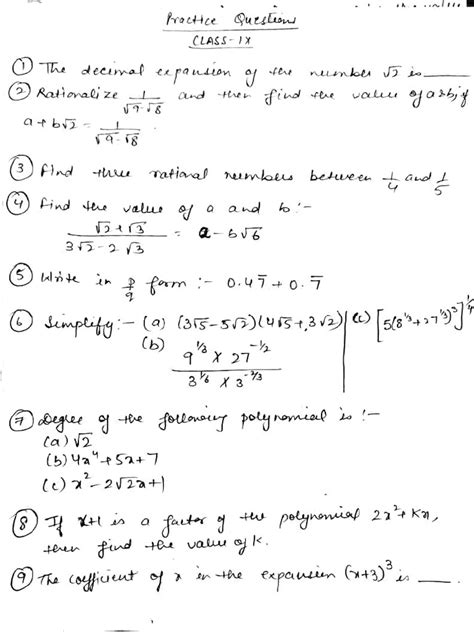 Practice Questions
CLASS-IX
① The decimal expansion of the number √2 is ____
② Rationalize 1/(√9-√8) and then find the value of a & b, if
a+b√2 = 1/(√9-√8)
③ Find three rational numbers between 1/4 and 1/5
④ Find the value of a and b :-
(√2+√3)/(3√2-2√3) = a-b√6
⑤ Write in p/q form :- 0.47̅ + 0.7̅
⑥ Simplify :- (a) (3√5-5√2)(4√5+3√2) | (c) [5(8^(1/3)+27^(1/3))^3]^(1/4)
(b) (9^(1/3) × 27^(-1/2))/(3^(1/6) × 3^(-2/3))
⑦ Degree of the following polynomial is :-
(a) √2
(b) 4x⁴+5x+7
(c) x²-2√2x+1
⑧ If x+1 is a factor of the polynomial 2x²+Kx,
then find the value of K.
⑨ The coefficient of x in the expansion (x+3)³ is ____.